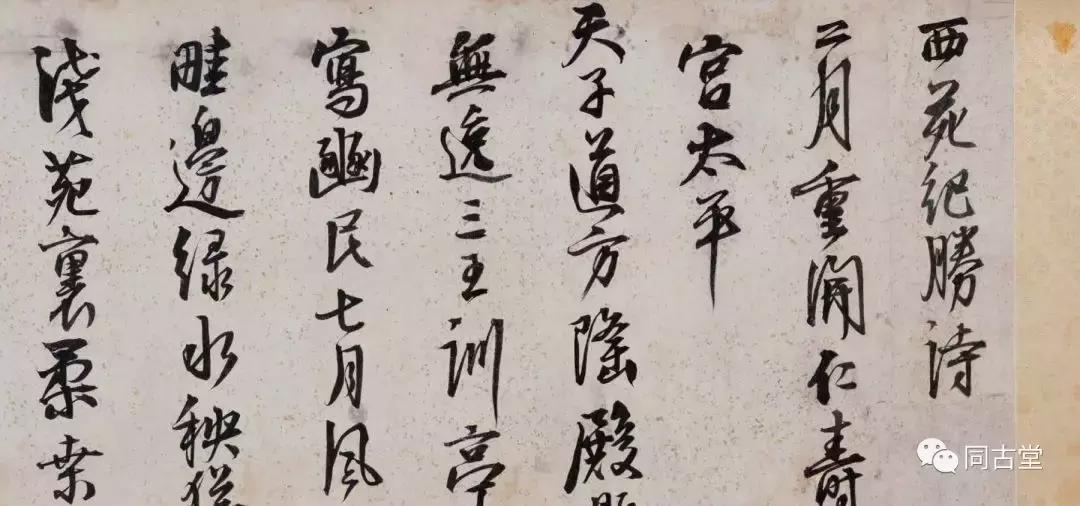 西苑紀勝詩
二月重開仁壽
宮太平
天子道方隆殿
無逸三王訓亭
寫豳民七月風
畦邊綠水秧
淺苑裏柔桑
同古堂